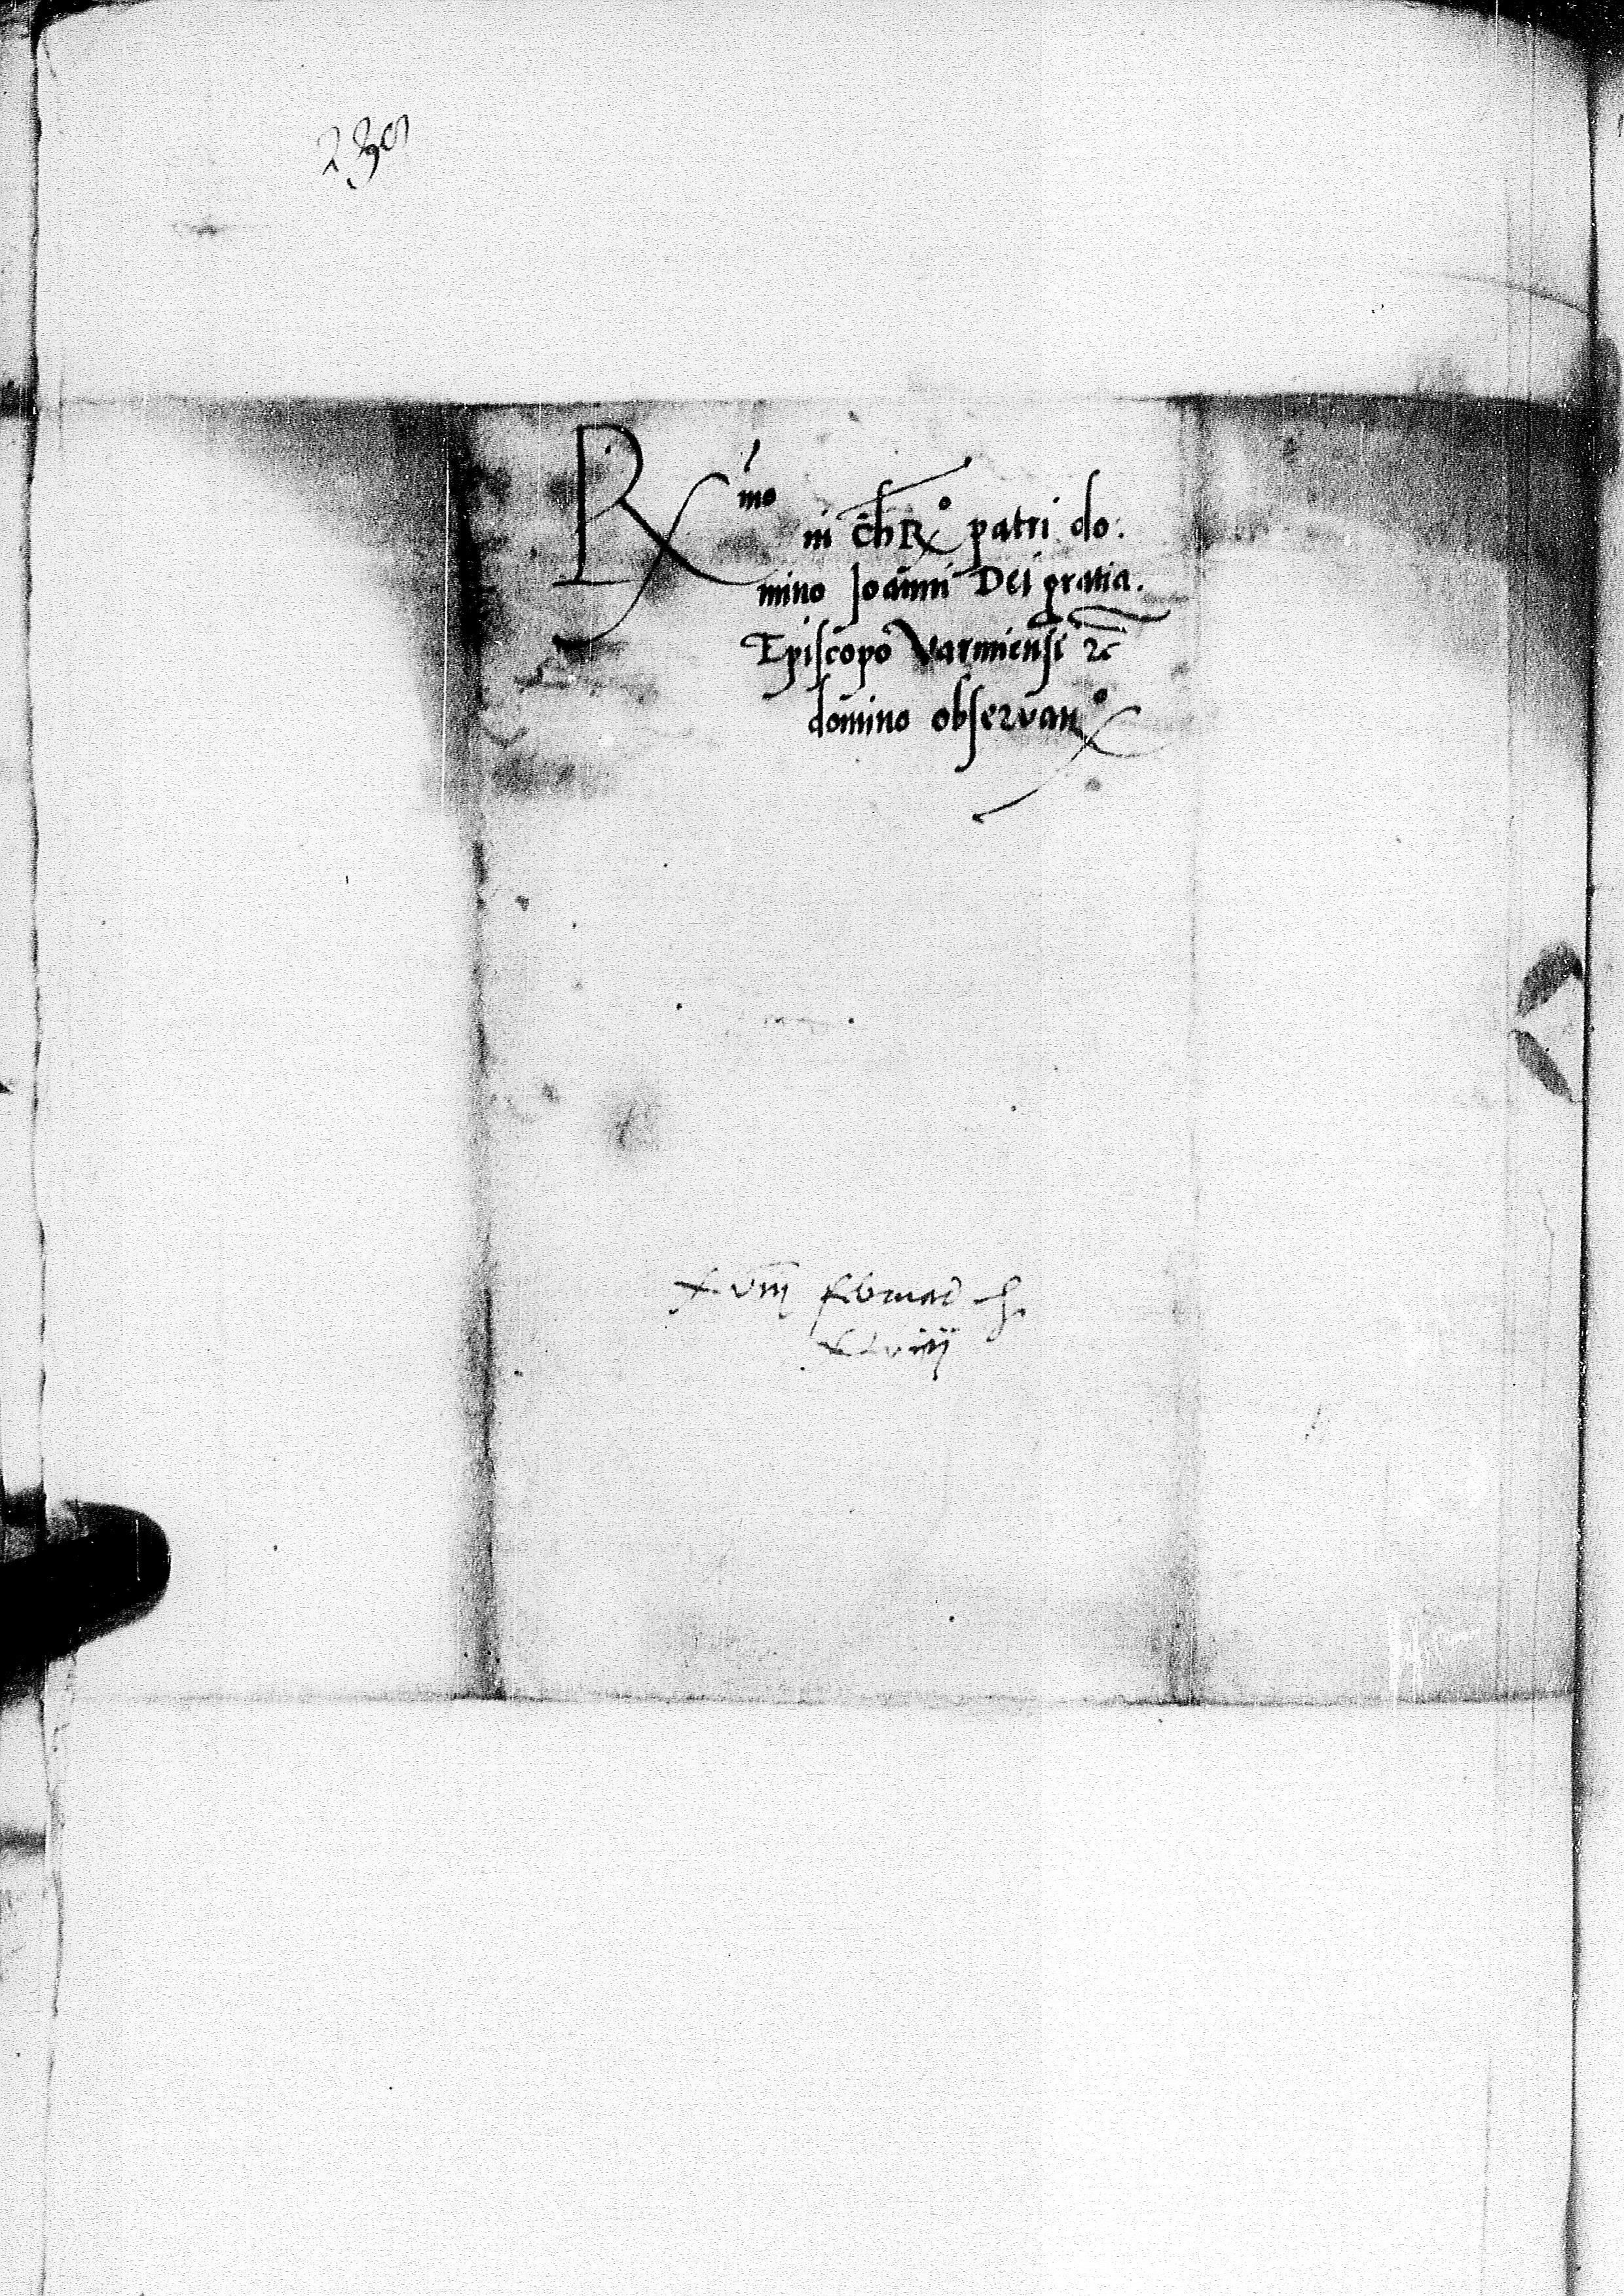 R^mo in Chr° patri do:
mino Joanni Dei gratia.
Episcopo Varmiensi &c
domino observan°
xviii februarii
xlviii